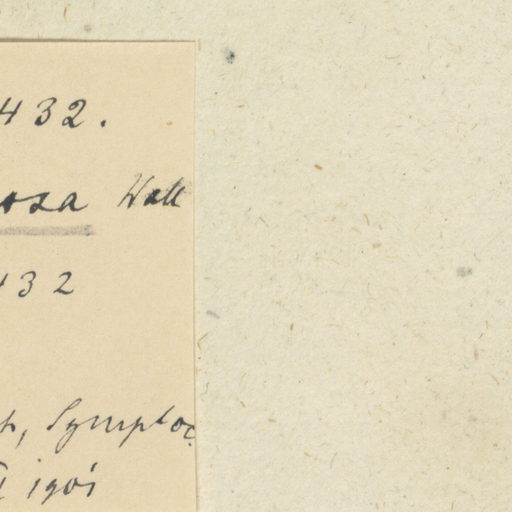 432.
osa Wall
432
Symploc.
1901